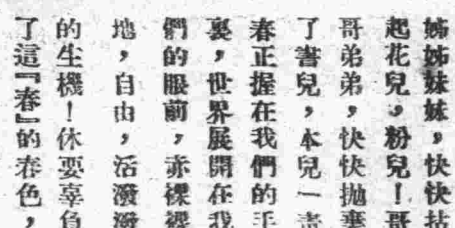 姊姊妹妹，快快拈
起花兒，粉兒！哥
哥弟弟，快快拋棄
了書兒，本兒一
春正握在我們的手
裏，世界展開在我
們的眼前，赤裸裸
地，自由，活潑潑
的生機！休要辜負
了這『春』的春色，